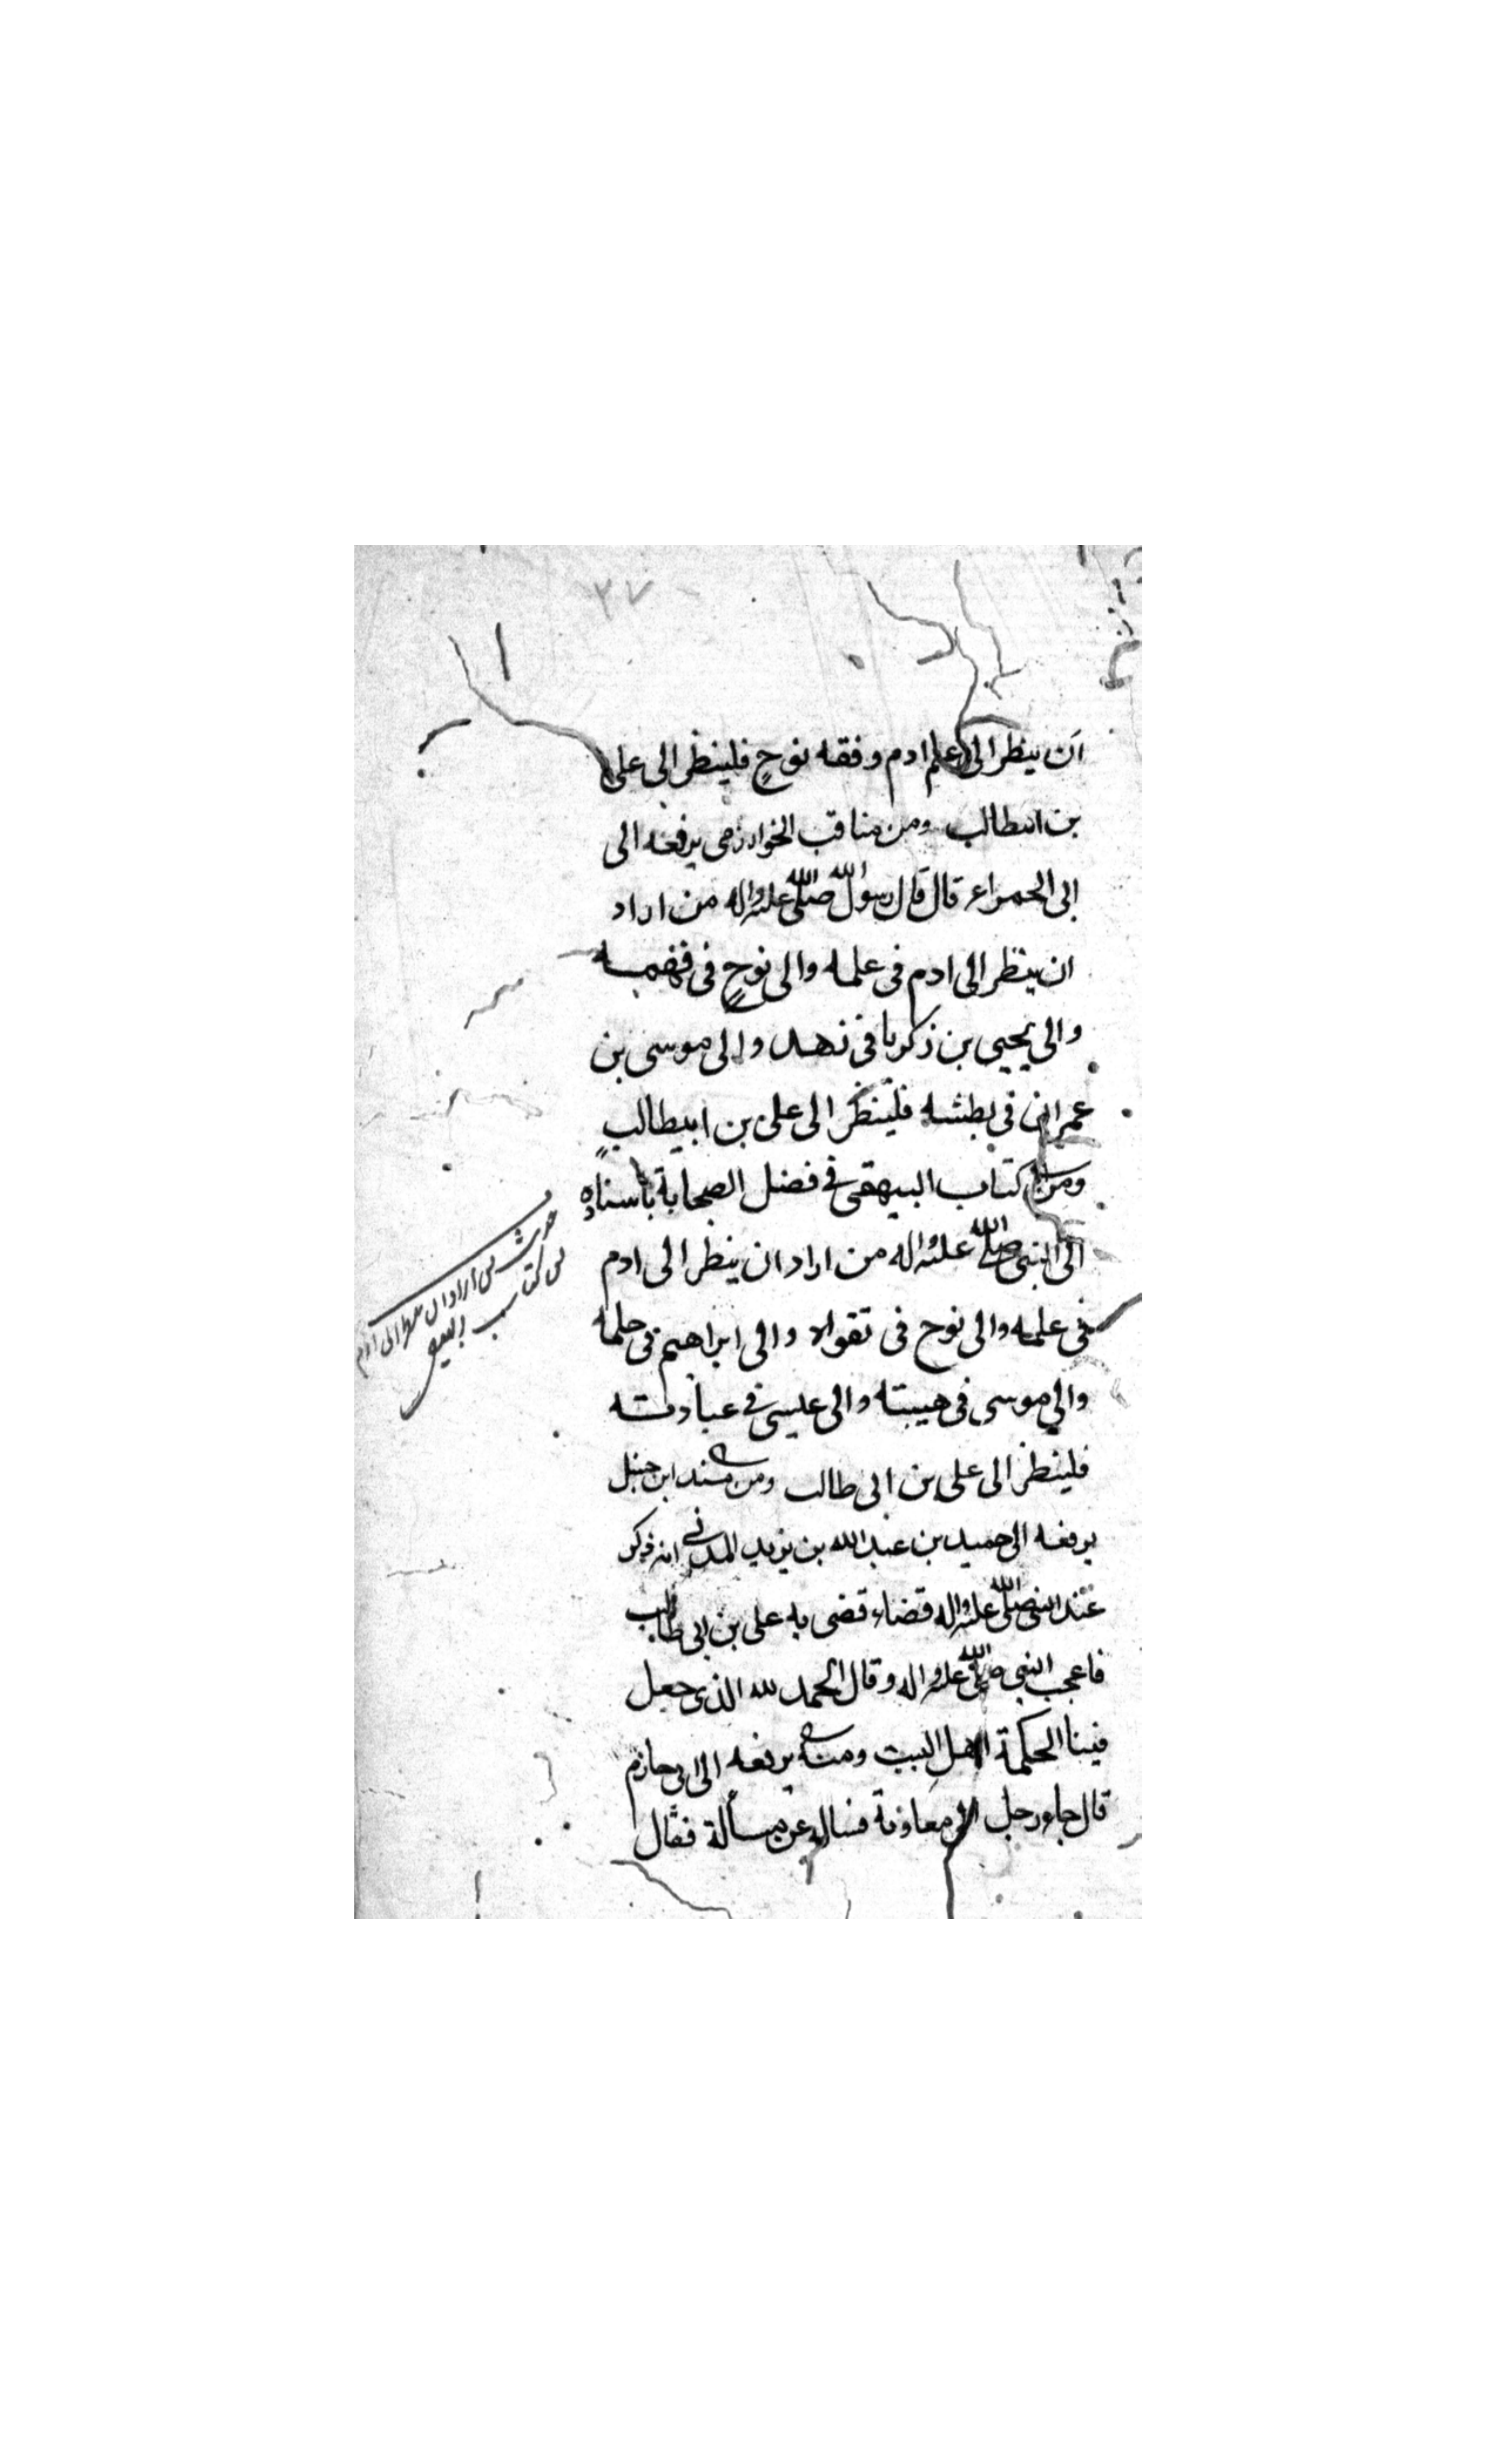 ٣٧
ان ينظر الى علم ادم وفقه نوحٍ فلينظر الى على
بن ابيطالب ومن مناقب الخوارزمى يرفعه الى
ابى الحمراء قال قال رسول الله صلى الله عليه واله من اراد
ان ينظر الى ادم فى علمه والى نوحٍ فى فهمه
والى يحيى بن زكريا فى زهده والى موسى بن
عمران فى بطشه فلينظر الى على بن ابيطالبٍ
ومن كتاب البيهقى فى فضل الصحابة باسنادهِ
الى النبى صلى الله عليه واله من اراد ان ينظر الى ادم
فى علمه والى نوح فى تقواه والى ابراهيم فى حلمه
والى موسى فى هيبته والى عيسى فى عبادته
فلينظر الى على بن ابى طالب ومن مسند ابن حنبل
يرفعه الى حميد بن عبد الله بن يزيد المدنى انه ذكر
عند النبى صلى الله عليه واله قضاء قضى به على بن ابى طالب
فاعجب النبى صلى الله عليه واله وقال الحمد لله الذى جعل
فينا الحكمة اهل البيت ومنه يرفعه الى ابى حازم
قال جاء رجل الى معاوية فساله عن مسألة فقال
حديث من اراد ان ينظر الى ادم
من كتاب